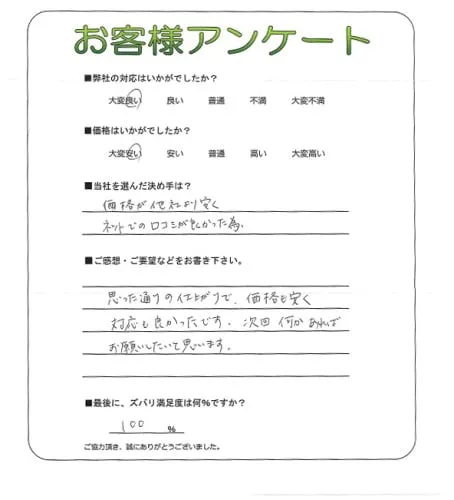 お客様アンケート
■弊社の対応はいかがでしたか?
大変良い 良い 普通 不満 大変不満
■価格はいかがでしたか?
大変安い 安い 普通 高い 大変高い
■当社を選んだ決め手は?
価格が他社より安く
ネットでの口コミが良かった為。
■ご感想・ご要望などをお書き下さい。
思った通りの仕上がりで、価格も安く
対応も良かったです。次回何かあれば
お願いしたいて思います。
■最後に、ズバリ満足度は何%ですか?
100 %
ご協力頂き、誠にありがとうございました。